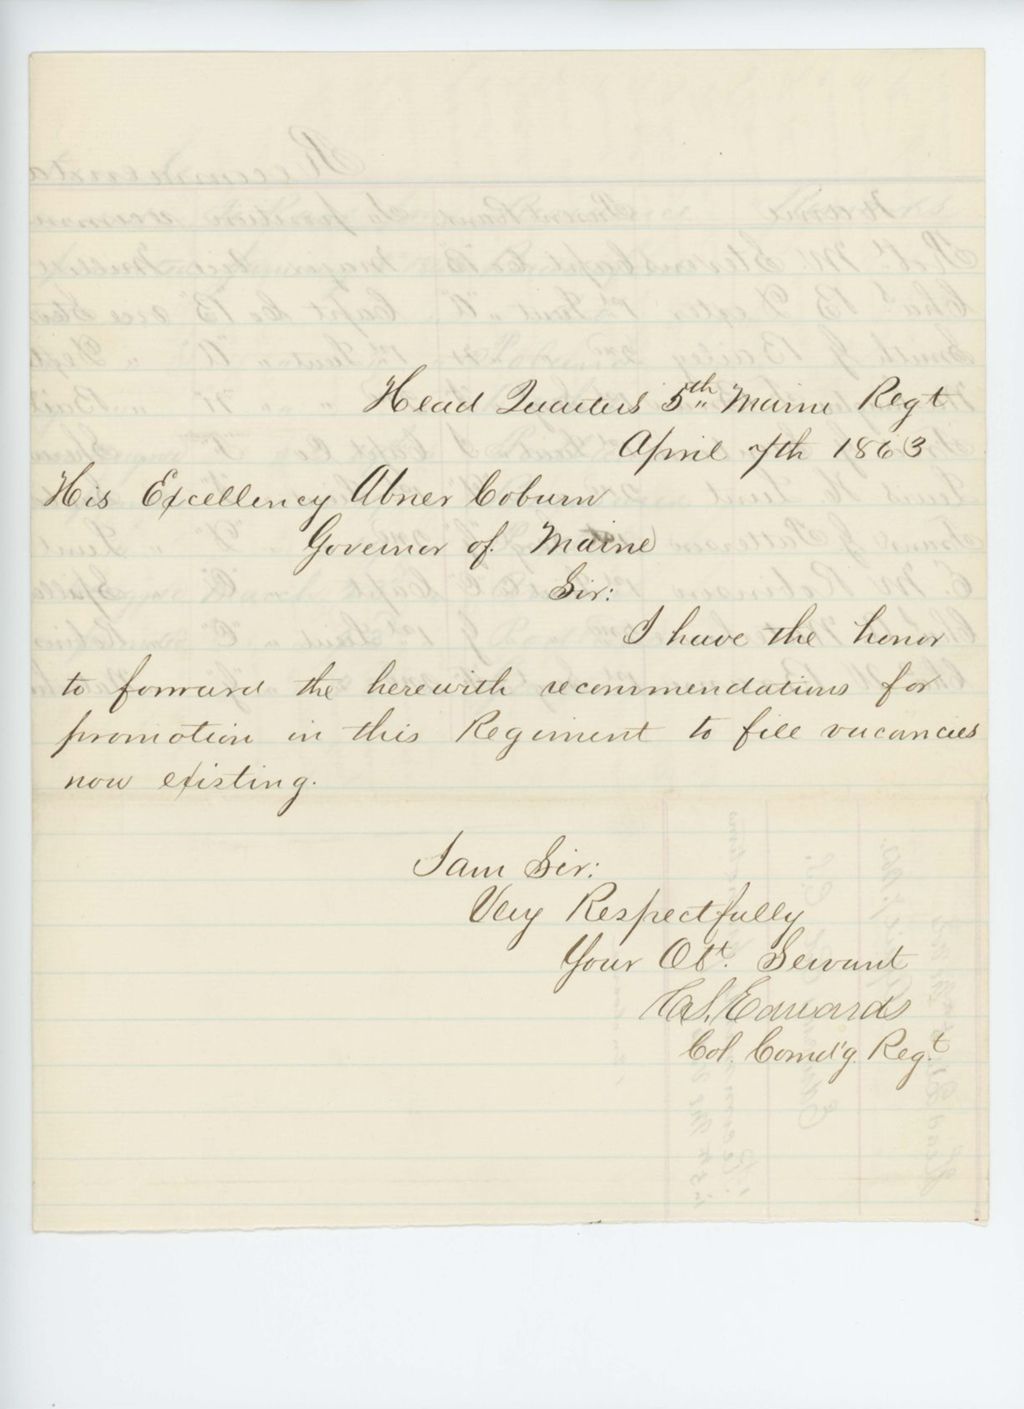 Head Quarters 5th Maine Regt
April 7th 1863
His Excellency Abner Coburn
Governor of Maine
Sir:
I have the honor
to forward the herewith recommendations for
promotion in this Regiment to fill vacancies
now existing.
I am Sir:
Very Respectfully
Your Obt. Servant
C.S. Edwards
Col. Comd'g. Regt